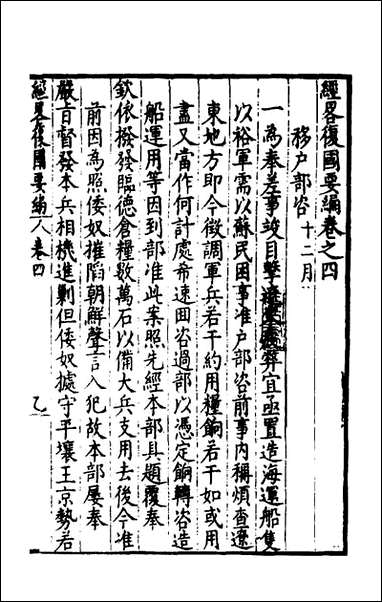 經畧復國要編卷之四
移户部咨 十二月
一為奏差事竣目擊遼東疲弊宜亟置造海運船隻
以裕軍需以蘇民困事准户部咨前事内稱煩查遼
東地方即今徵調軍兵若干約用糧餉若干如或用
盡又當作何計處希速回咨過部以憑定餉轉咨造
船運用等因到部准此案照先經本部具題覆奉
欽依撥發臨德倉糧數萬石以備大兵支用去後今准
前因為照倭奴摧陷朝鮮聲言入犯故本部屡奉
嚴旨督發本兵相機進剿但倭奴據守平壤王京勢若
經畧復國要編 卷四 乙